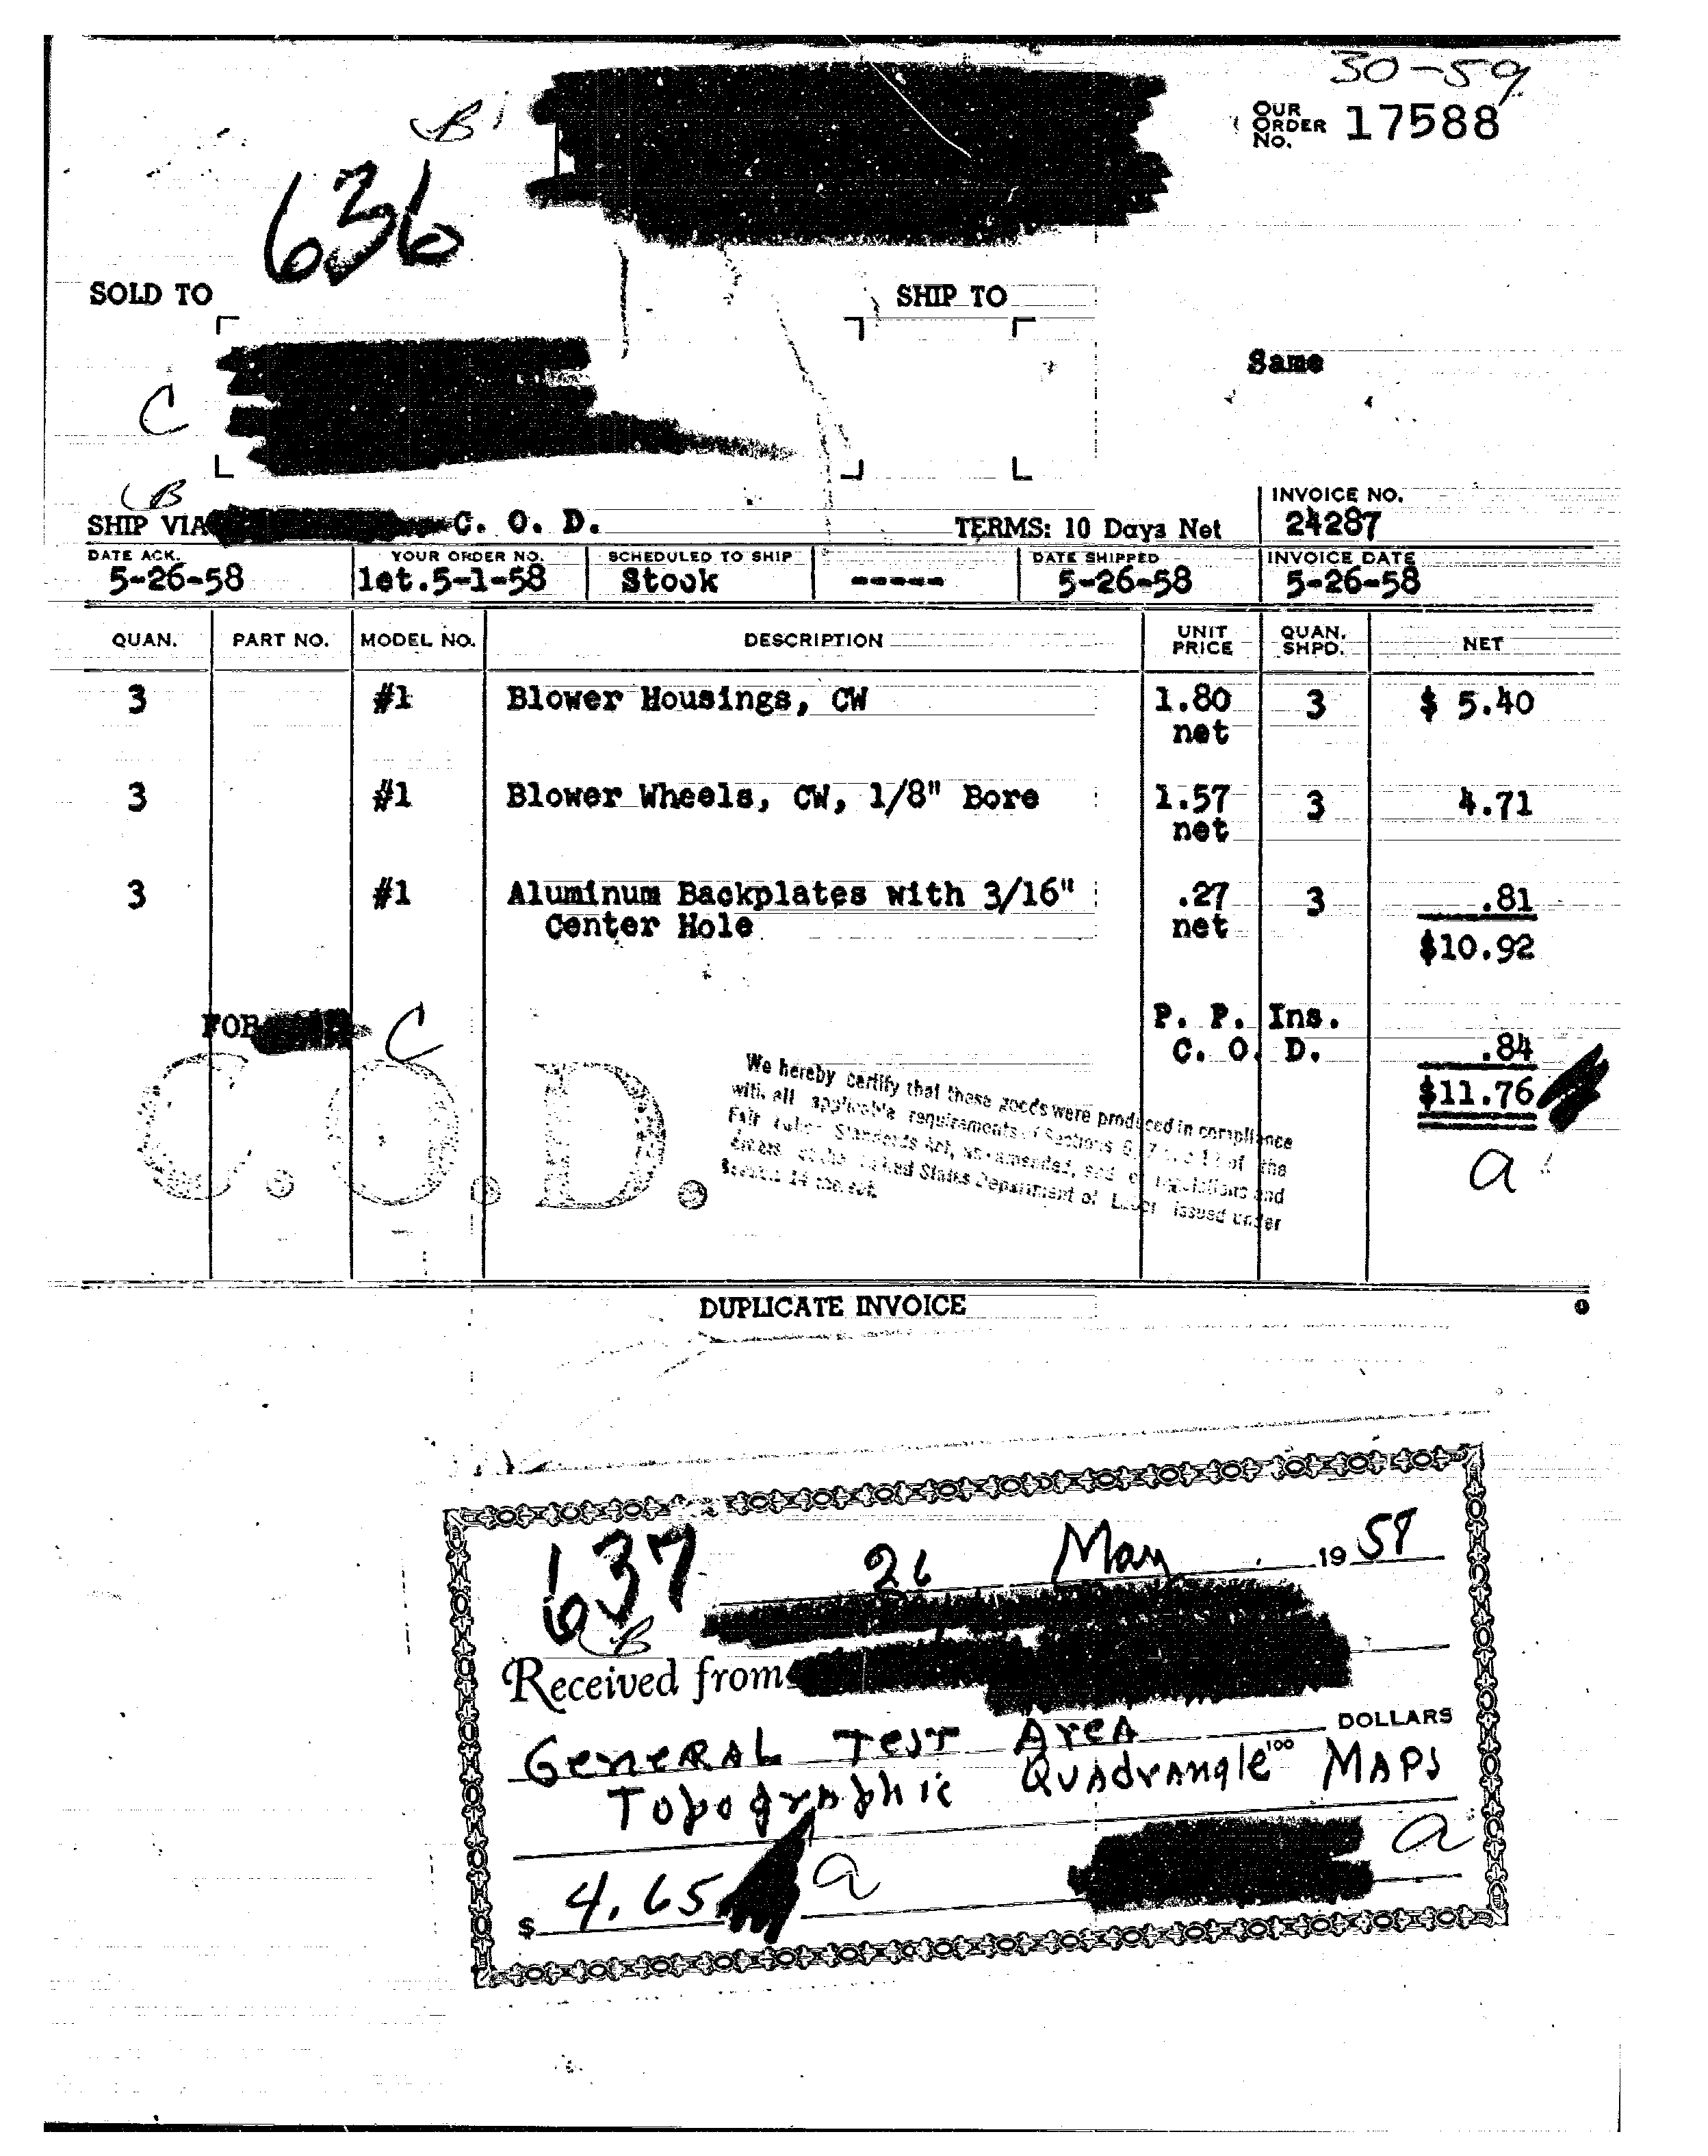 30-59
B
OUR ORDER No. 17588
636
SOLD TO
SHIP TO
Same
C
B
SHIP VIA C. O. D. TERMS: 10 Days Net
INVOICE NO. 24287
DATE ACK. YOUR ORDER NO. SCHEDULED TO SHIP DATE SHIPPED INVOICE DATE
5-26-58 let.5-1-58 Stock ----- 5-26-58 5-26-58
QUAN. PART NO. MODEL NO. DESCRIPTION UNIT PRICE QUAN. SHPD. NET
3 #1 Blower Housings, CW 1.80 3 $ 5.40
net
3 #1 Blower Wheels, CW, 1/8" Bore 1.57 3 4.71
net
3 #1 Aluminum Backplates with 3/16" .27 3 .81
Center Hole net
$10.92
FOB C
P. P. Ins.
C. O. D. .84
$11.76
a
C.O.D.
We hereby certify that these goods were produced in compliance
with all applicable requirements of Sections 6, 7 of the
Fair Labor Standards Act, as amended, and of regulations and
orders of the United States Department of Labor issued under
Section 14 thereof.
DUPLICATE INVOICE
637
26 May 1958
B
Received from
DOLLARS
General Test Area
100
Topographic Quadrangle Maps
a
$ 4.65 a